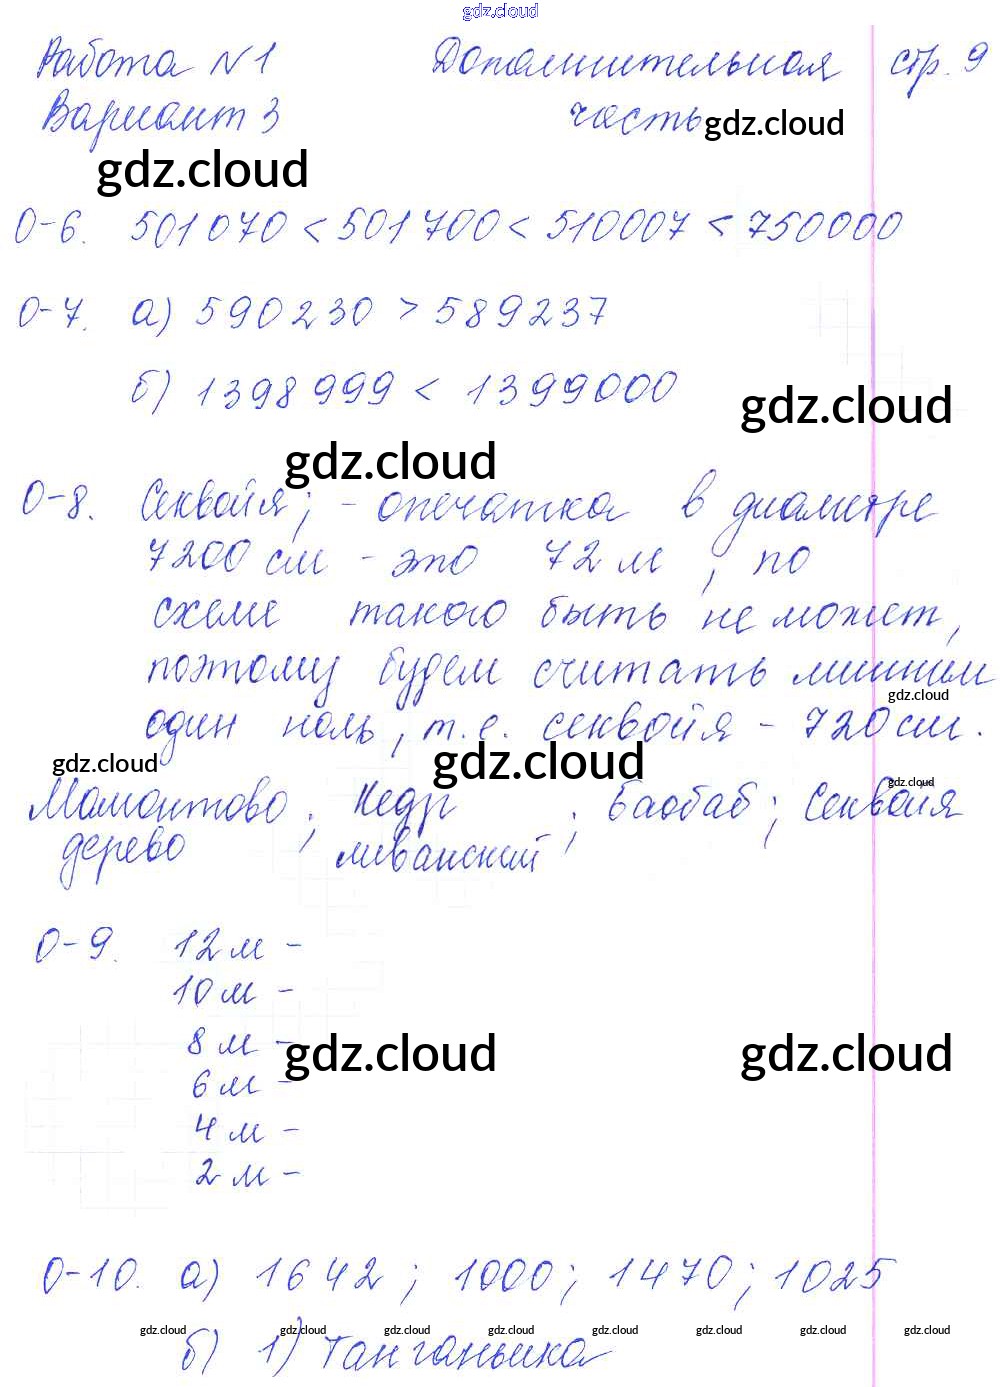 gdz.cloud
Работа №1 Дополнительная стр. 9
Вариант 3 часть gdz.cloud
gdz.cloud
О-6. 501070 < 501700 < 510007 < 750000
О-7. а) 590230 > 589237
б) 1398999 < 1399000
gdz.cloud
gdz.cloud
О-8. Секвойя; - опечатка в диаметре
7200 см - это 72 м, по
схеме такого быть не может,
поэтому будем считать лишним
gdz.cloud
один ноль, т.е. секвойя - 720 см.
gdz.cloud gdz.cloud
gdz.cloud
Мамонтово ; Кедр ; Баобаб ; Секвойя
дерево ливанский
О-9. 12 м -
10 м -
8 м -
gdz.cloud gdz.cloud
6 м -
4 м -
2 м -
О-10. а) 1642 ; 1000 ; 1470 ; 1025
gdz.cloud gdz.cloud gdz.cloud gdz.cloud gdz.cloud gdz.cloud gdz.cloud gdz.cloud
б) 1) Танганьика